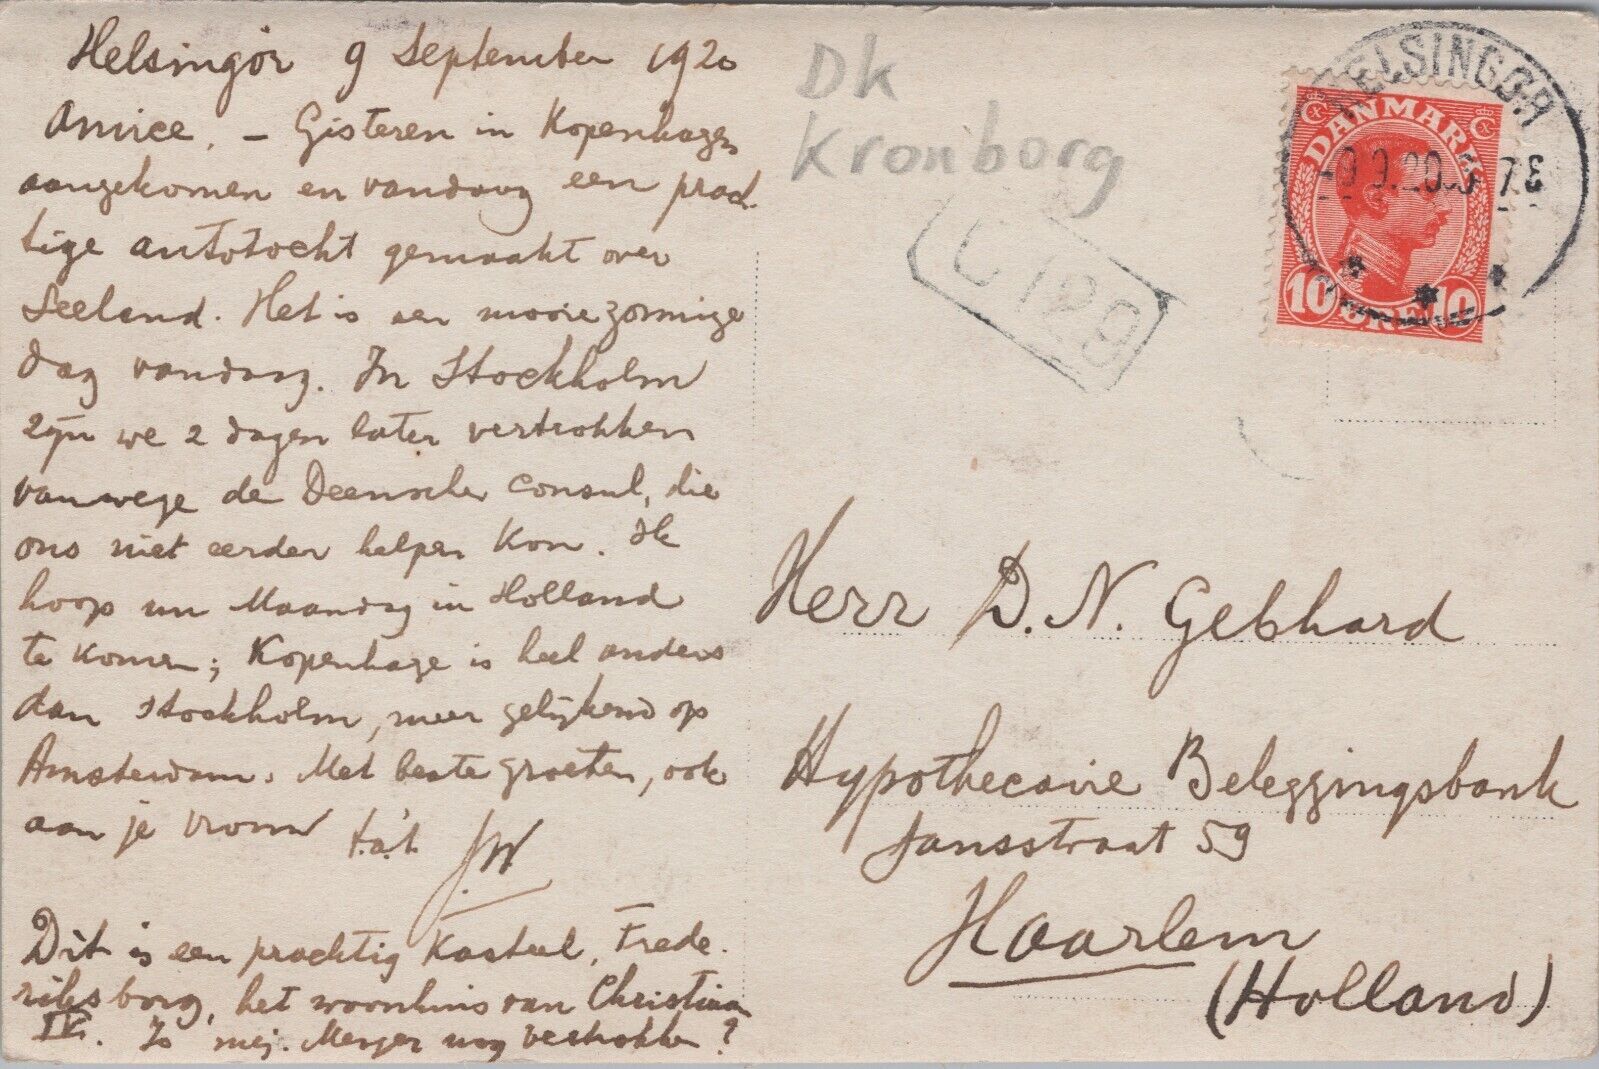 Helsingör 9 September 1920
Amice, – Gisteren in Kopenhagen
aangekomen en vandaag een prach-
tige autotocht gemaakt over
Seeland. Het is een mooie zonnige
dag vandaag. In Stockholm
zijn we 2 dagen later vertrokken
vanwege de Deensche consul, die
ons niet eerder helpen kon. Ik
hoop nu Maandag in Holland
te komen; Kopenhage is heel anders
dan Stockholm, meer gelijkend op
Amsterdam. Met beste groeten, ook
aan je vrouw t.à.t.
J.W.
Dit is een prachtig Kasteel, Frede-
riksborg, het woonhuis van Christiaan
IV. Is mej. Merger nog vertrokken?
Dk
Kronborg
C 129
HELSINGØR
-9.9.20. 6-7 E
DANMARK
10 ØRE 10
Herr D. N. Gebhard
Hypothecaire Beleggingsbank
Jansstraat 59
Haarlem
(Holland)